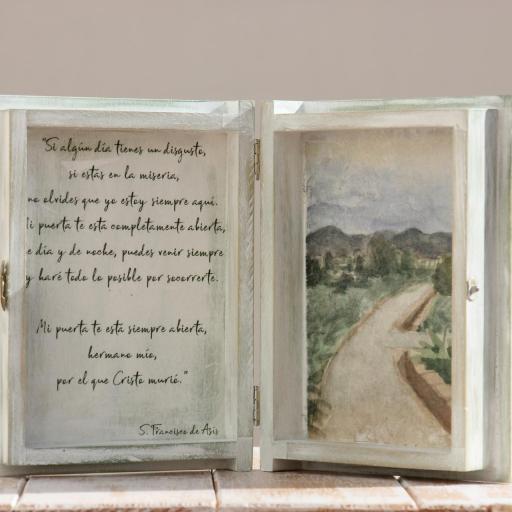 "Si algún día tienes un disgusto,
si estás en la miseria,
no olvides que yo estoy siempre aquí.
Mi puerta te está completamente abierta,
de día y de noche, puedes venir siempre
y haré todo lo posible por socorrerte.
Mi puerta te está siempre abierta,
hermano mío,
por el que Cristo murió."
S. Francisco de Asís